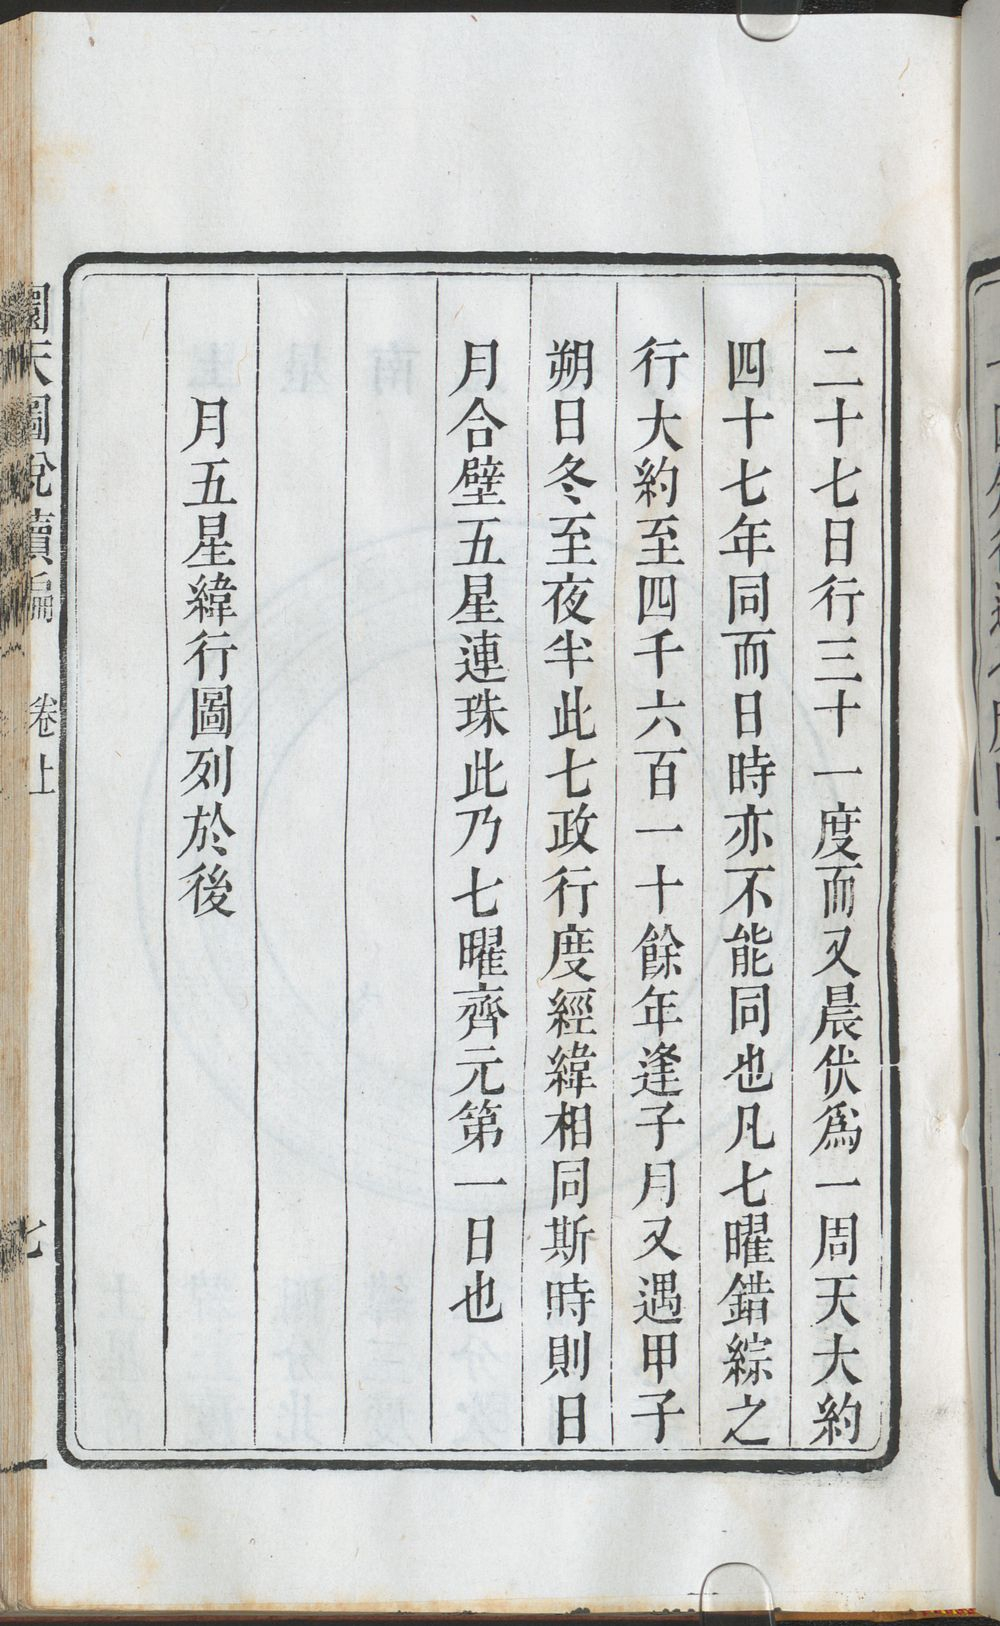 二十七日行三十一度而又晨伏爲一周天大約
四十七年同而日時亦不能同也凡七曜錯綜之
行大約至四千六百一十餘年逢子月又遇甲子
朔日冬至夜半此七政行度經緯相同斯時則日
月合璧五星連珠此乃七曜齊元第一日也
月五星緯行圖列於後
圜天圖說續編 卷上 七